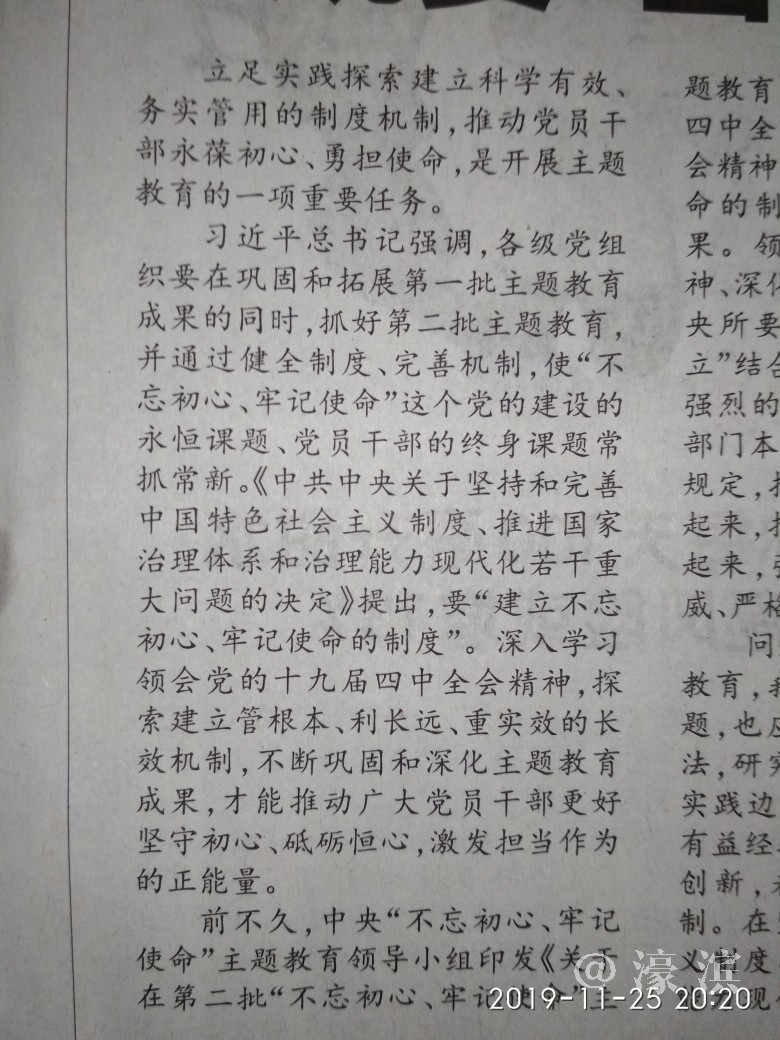 立足实践探索建立科学有效、
务实管用的制度机制，推动党员干
部永葆初心、勇担使命，是开展主题
教育的一项重要任务。
习近平总书记强调，各级党组
织要在巩固和拓展第一批主题教育
成果的同时，抓好第二批主题教育，
并通过健全制度、完善机制，使“不
忘初心、牢记使命”这个党的建设的
永恒课题、党员干部的终身课题常
抓常新。《中共中央关于坚持和完善
中国特色社会主义制度、推进国家
治理体系和治理能力现代化若干重
大问题的决定》提出，要“建立不忘
初心、牢记使命的制度”。深入学习
领会党的十九届四中全会精神，探
索建立管根本、利长远、重实效的长
效机制，不断巩固和深化主题教育
成果，才能推动广大党员干部更好
坚守初心、砥砺恒心，激发担当作为
的正能量。
前不久，中央“不忘初心、牢记
使命”主题教育领导小组印发《关于
在第二批“不忘初心、牢记使命”主
题教育
四中全
会精神
命的制
果。领
神、深化
央所要
立”结合
强烈的
部门本
规定，
起来，
起来，
威、严格
问
教育，
题，也应
法，研究
实践边
有益经
创新，
制。在
义制度
@濠滨
2019-11-25 20:20